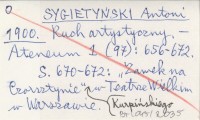 SYGIETYŃSKI Antoni
1900. Ruch artystyczny. -
Ateneum 1. (97): 656-672.
S. 670-672: "Zamek na
Czorsztynie" w Teatrze Wielkim
w Warszawie. Kurpińskiego